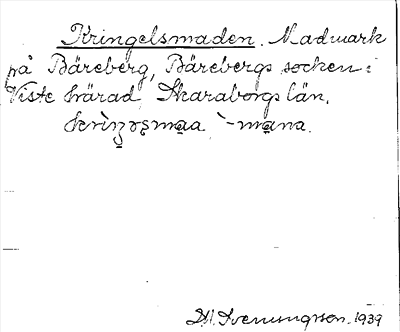 Kringelsmaden. Madmark
på Bäreberg, Bärebergs socken i
Viste härad, Skaraborgs län.
D. Svenungsson. 1939